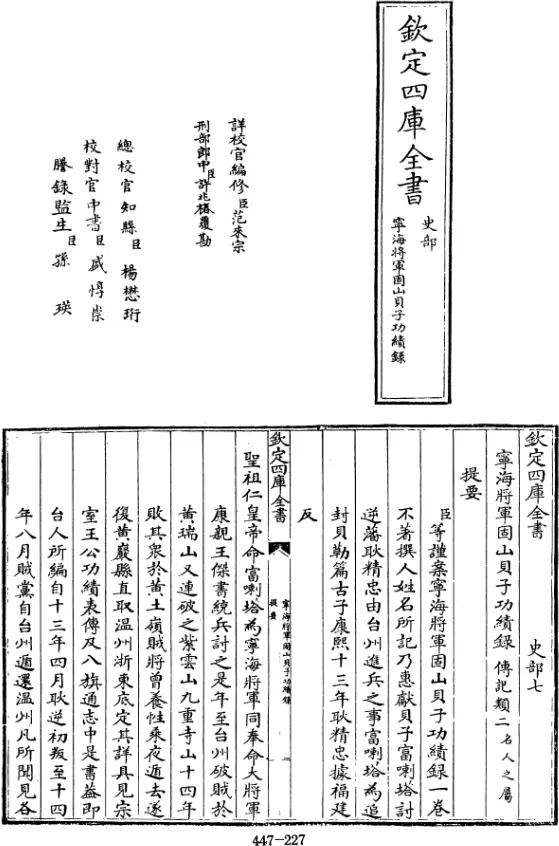 欽定四庫全書
史部
寧海將軍固山貝子功績錄
詳校官編修臣范來宗
刑部郎中臣許兆椿覆勘
總校官知縣臣楊懋珩
校對官中書臣戚惇崇
謄錄監生臣孫瑛
欽定四庫全書 史部七
寧海將軍固山貝子功績錄 傳記類二名人之屬
提要
臣等謹案寧海將軍固山貝子功績錄一卷
不著撰人姓名所記乃惠獻貝子富喇塔討
逆藩耿精忠由台州進兵之事富喇塔為追
封貝勒篇古子康熙十三年耿精忠據福建
反
欽定四庫全書
寧海將軍固山貝子功績錄
提要
聖祖仁皇帝命富喇塔為寧海將軍同奉命大將軍
康親王傑書統兵討之是年至台州破賊於
黃瑞山又連破之紫雲山九重寺山十四年
敗其衆於黃土嶺賊將曾養性乘夜遁去遂
復黃巖縣直取溫州浙東底定其詳具見宗
室王公功績表傳及八旗通志中是書蓋即
台人所編自十三年四月耿逆初叛至十四
年八月賊黨自台州遁還溫州凡所聞見各
447-227